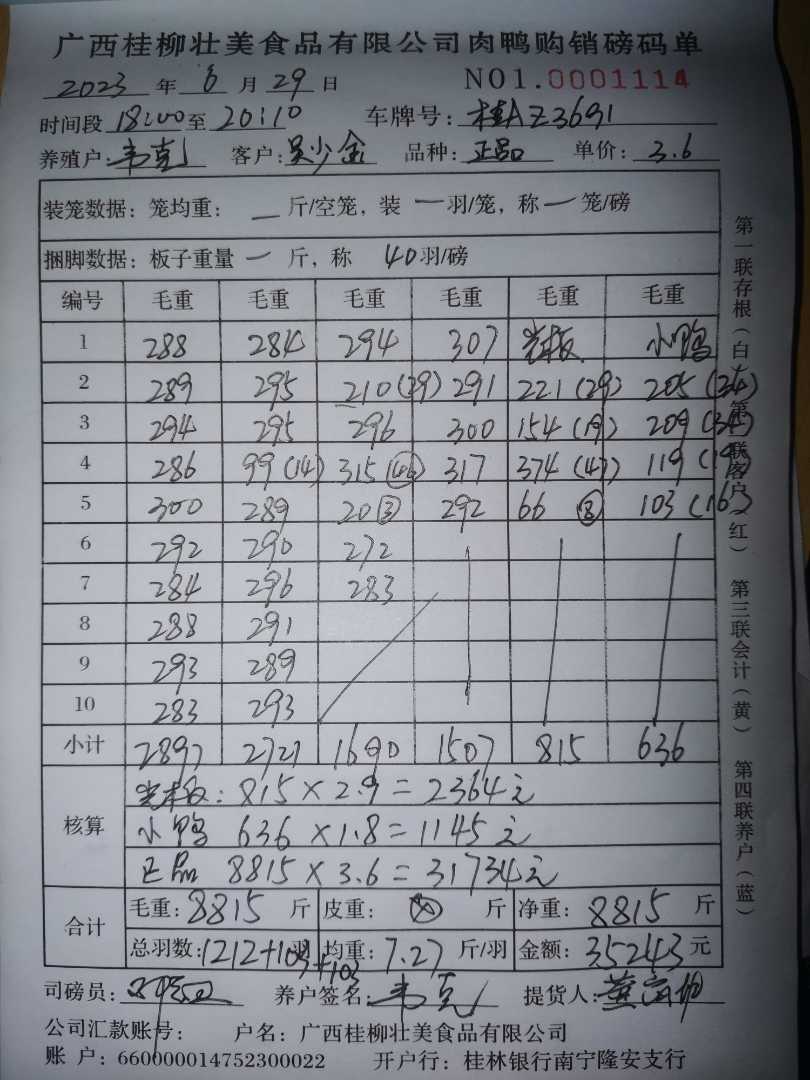 广西桂柳壮美食品有限公司肉鸭购销磅码单
2023 年 6 月 29 日 NO1.0001114
时间段 18:00 至 20:10 车牌号: 桂AZ3691
养殖户: 韦克 客户: 吴少金 品种: 正品 单价: 3.6
装笼数据: 笼均重: 一 斤/空笼, 装 一 羽/笼, 称 一 笼/磅
捆脚数据: 板子重量 一 斤, 称 40 羽/磅
编号 毛重 毛重 毛重 毛重 毛重 毛重
1 288 284 294 307 光板 小鸭
2 289 295 210(29) 291 221(29) 205(34)
3 294 295 296 300 154(19) 209(34)
4 286 99(14) 315(46) 317 374(47) 119(19)
5 300 289 20(3) 292 66(8) 103(16)
6 292 290 272
7 284 296 283
8 288 291
9 293 289
10 283 293
小计 2897 2721 1690 1507 815 636
核算 光板: 815×2.9=2364元
小鸭 636×1.8=1145元
正品 8815×3.6=31734元
合计 毛重: 8815 斤 皮重: 斤 净重: 8815 斤
总羽数: 1212+103+103 羽 均重: 7.27 斤/羽 金额: 35243 元
司磅员: 养户签名: 韦克 提货人:
公司汇款账号: 户名: 广西桂柳壮美食品有限公司
账 户: 660000014752300022 开户行: 桂林银行南宁隆安支行
第一联存根(白) 第二联客户(红) 第三联会计(黄) 第四联养户(蓝)